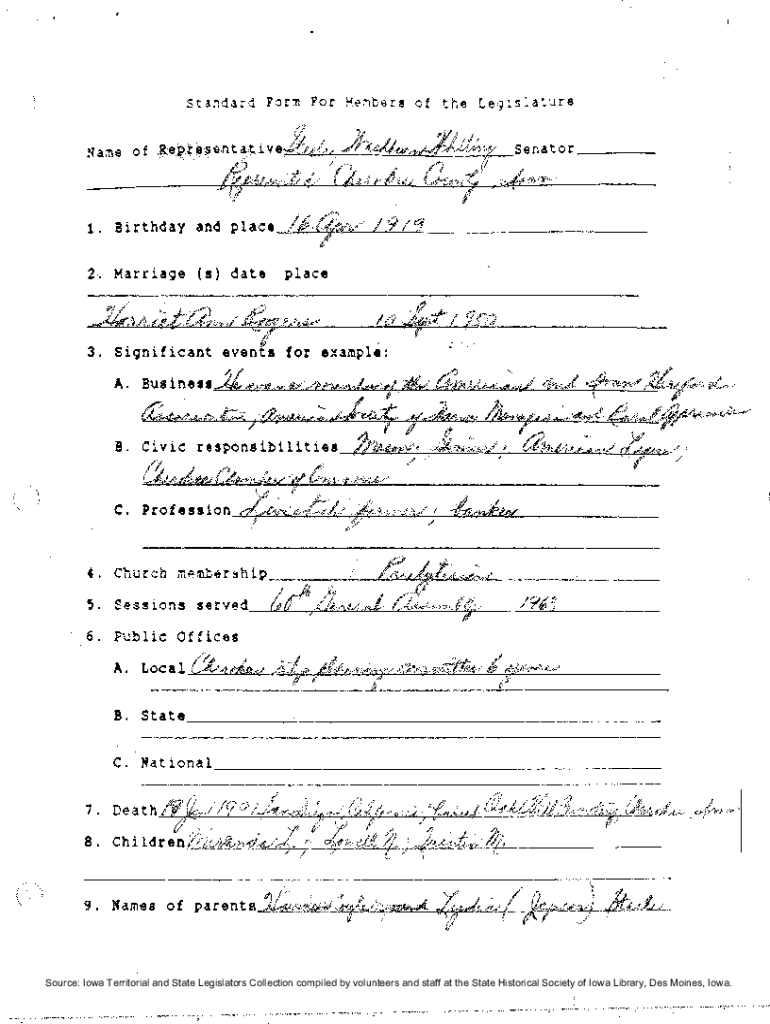 Standard Form For Members of the Legislature
Name of Representative Steele, Washburn Whiting Senator
Represented Cherokee County, Iowa
1. Birthday and place 16 Apr 1919
2. Marriage (s) date place
Harriet Ann Rogers 10 Sept 1950
3. Significant events for example:
A. Business He was a member of the American and Iowa Hereford
Association, American Society of Farm Managers and Rural Appraisers
B. Civic responsibilities Mason; Shrine; American Legion;
Cherokee Chamber of Commerce
C. Profession Livestock farmer; banker
4. Church membership Presbyterian
5. Sessions served 60th General Assembly 1963
6. Public Offices
A. Local Cherokee city planning committee 6 years
B. State
C. National
7. Death 18 Jan 1991 San Diego, California; buried Oak Hill Cemetery, Cherokee Iowa
8. Children Miranda L.; Lowell N.; M.
9. Names of parents and Lydia (Jepson) Steele
Source: Iowa Territorial and State Legislators Collection compiled by volunteers and staff at the State Historical Society of Iowa Library, Des Moines, Iowa.